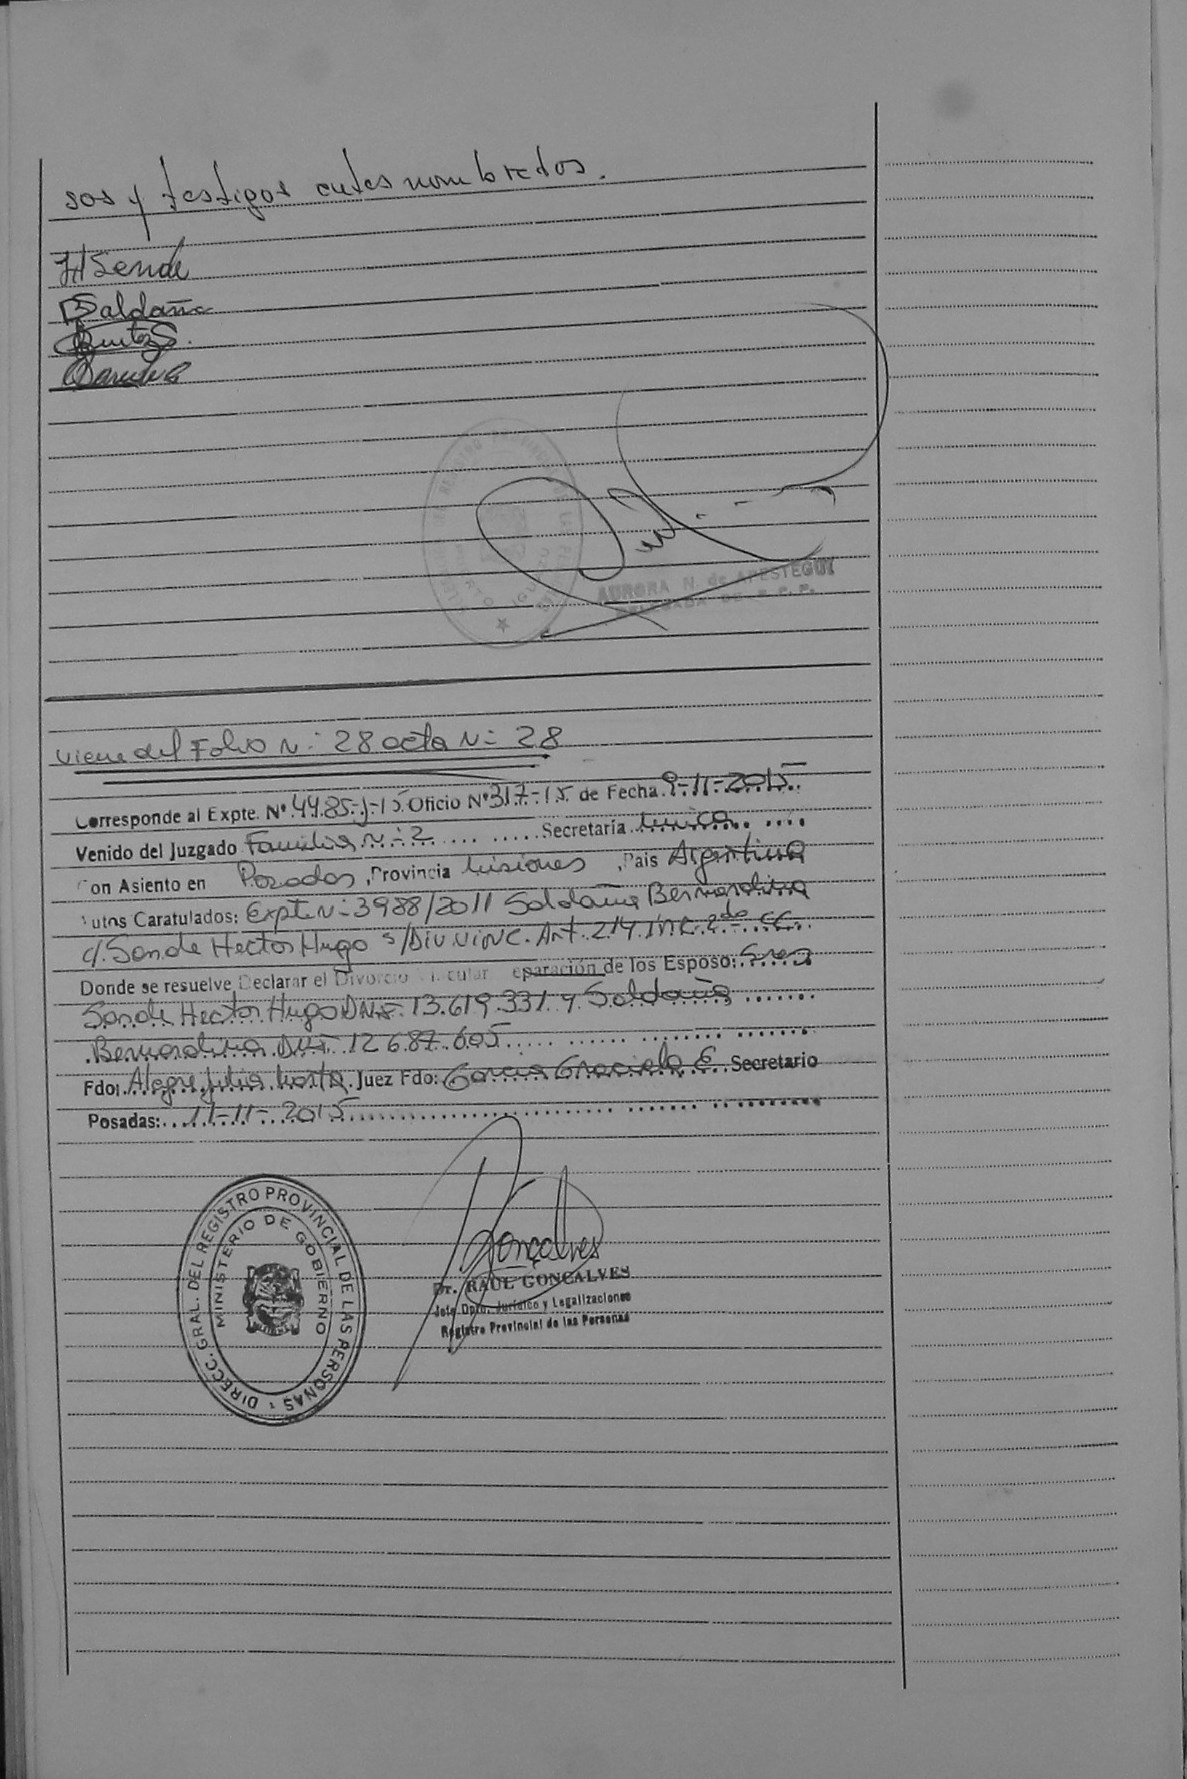 sos y testigos antes nombrados.
H Sende
BSaldaña
AURORA N. de APESTEGUI
Viene del Folio N- 28 acta N- 28
Corresponde al Expte. Nº 4485-J-15 Oficio Nº 317-15 de Fecha 9-11-2015
Venido del Juzgado Familia N-2 Secretaría única
Con Asiento en Posadas, Provincia Misiones, País Argentina
Autos Caratulados: Expte N-3988/2011 Saldaña Bernardina
c/. Sende Hector Hugo s/Div. Vinc. Art. 214. inc. 2do CC.
Donde se resuelve Declarar el Divorcio Vincular eparación de los Esposo: Sres
Sende Hector Hugo DNI. 13.619.331 y Saldaña
Bernardina DNI 12.687.605
Fdo: Alegre Julia Marta. Juez Fdo: Garcia Graciela E. Secretario
Posadas: 11-11-2015
DIRECC. GRAL. DEL REGISTRO PROVINCIAL DE LAS PERSONAS
MINISTERIO DE GOBIERNO
Gonçalves
Dr. RAUL GONCALVES
Jefe Dpto. Jurídico y Legalizaciones
Registro Provincial de las Personas